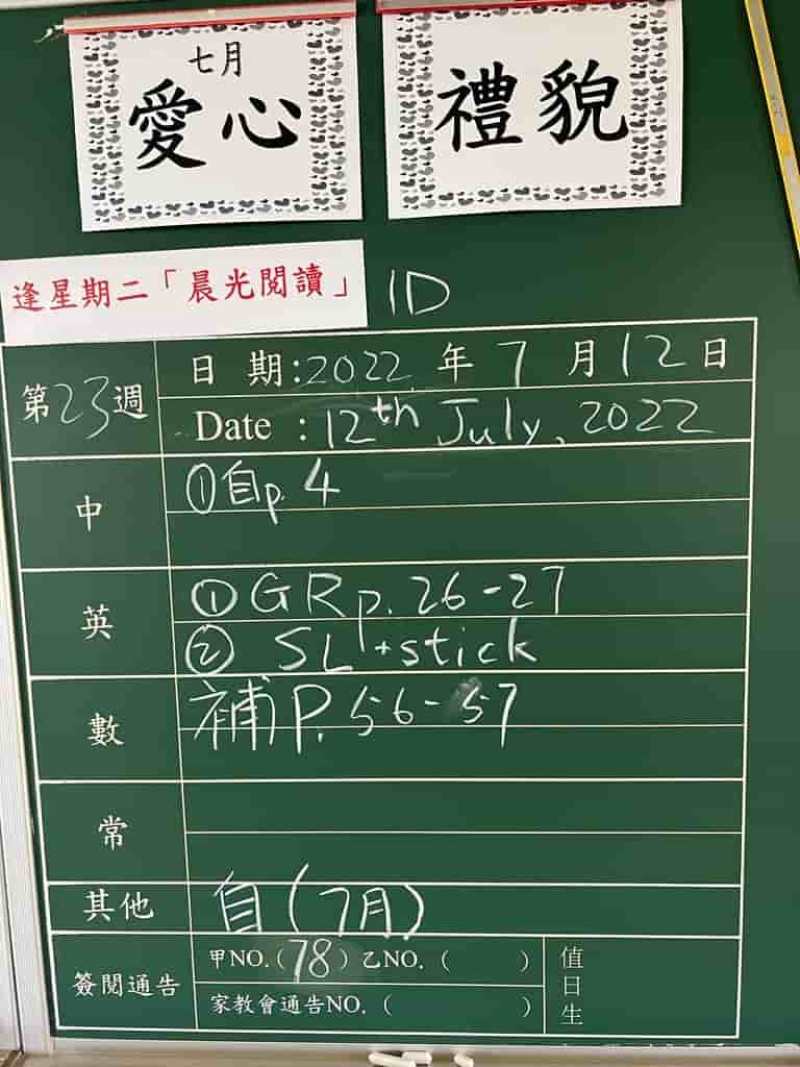 七月
愛心
禮貌
逢星期二「晨光閱讀」 1D
第23週
日 期:2022 年 7 月 12 日
Date :12th July, 2022
中
①自p. 4
英
①GR p. 26-27
② SL +stick
數
補P. 56-57
常
其他
自(7月)
簽閱通告
甲NO.(78)乙NO. ( )
家教會通告NO. ( )
值日生